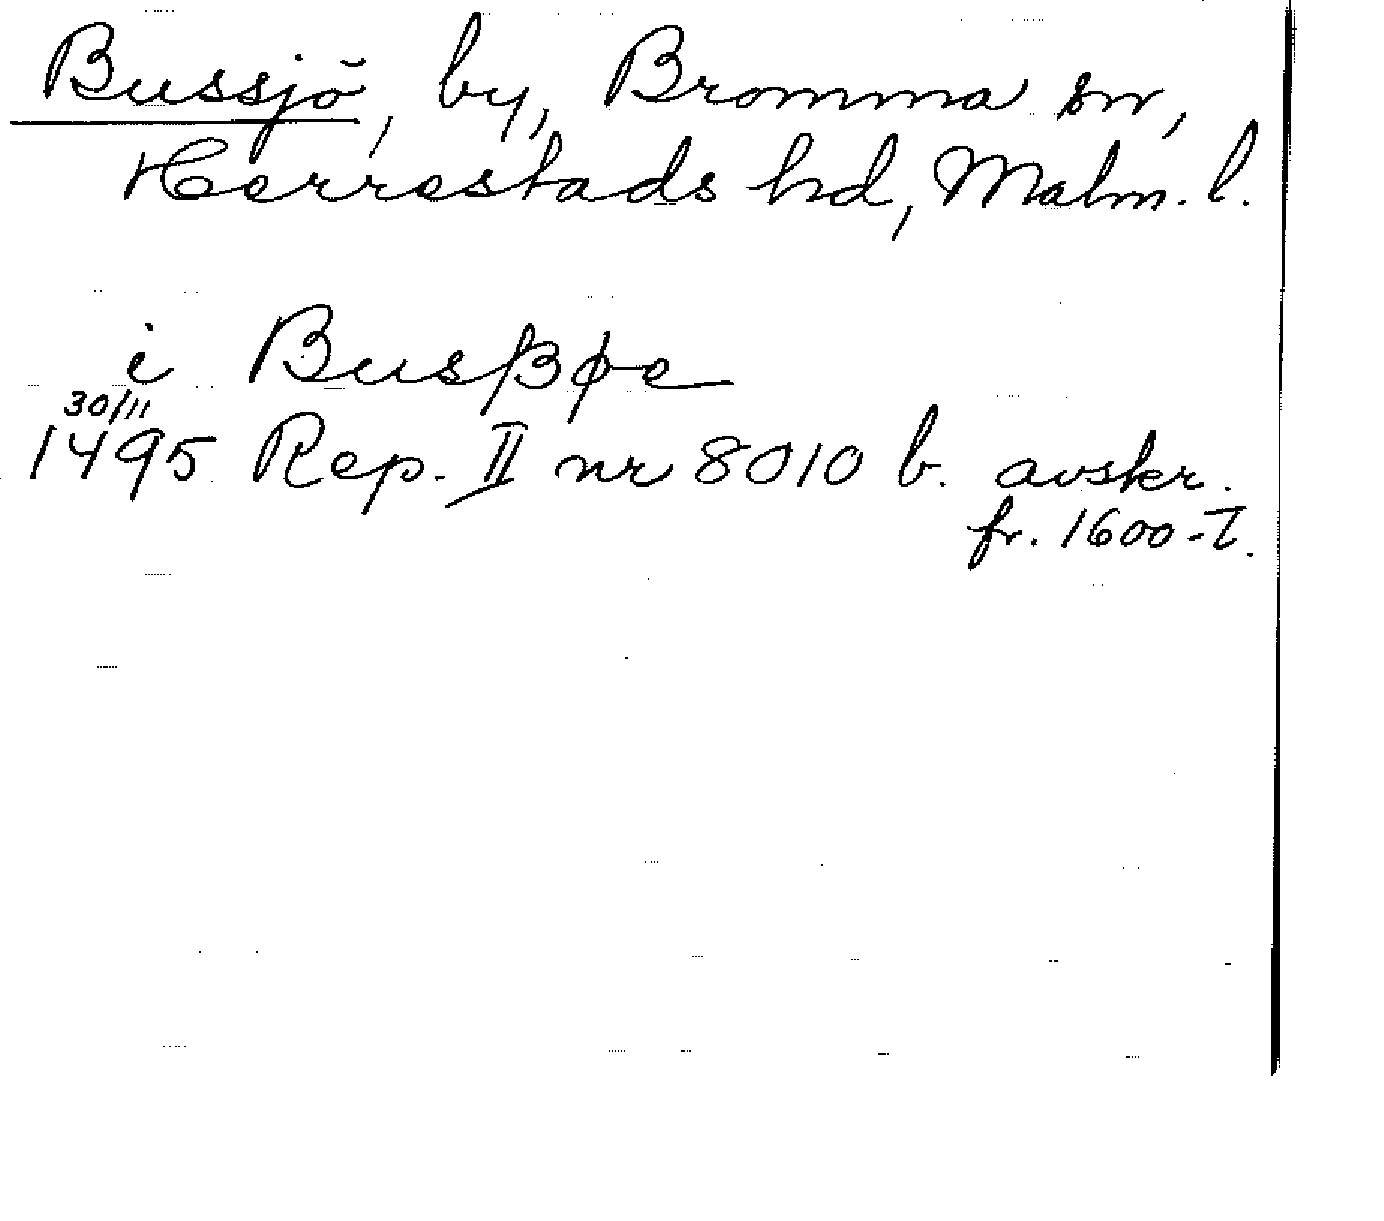 Bussjö, by, Bromma sn,
Herrestads hd, Malm. l.
i Busßøe
30/11
1495 Rep. II nr 8010 b. avskr.
fr. 1600-T.